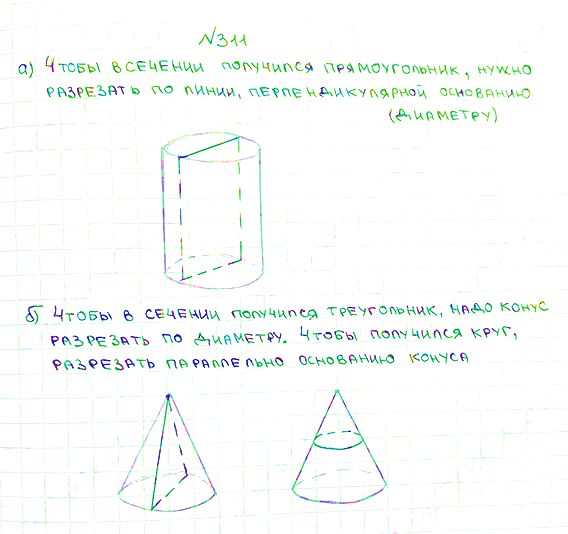 №311
а) Чтобы в сечении получился прямоугольник, нужно
разрезать по линии, перпендикулярной основанию
(диаметру)
б) Чтобы в сечении получился треугольник, надо конус
разрезать по диаметру. Чтобы получился круг,
разрезать параллельно основанию конуса